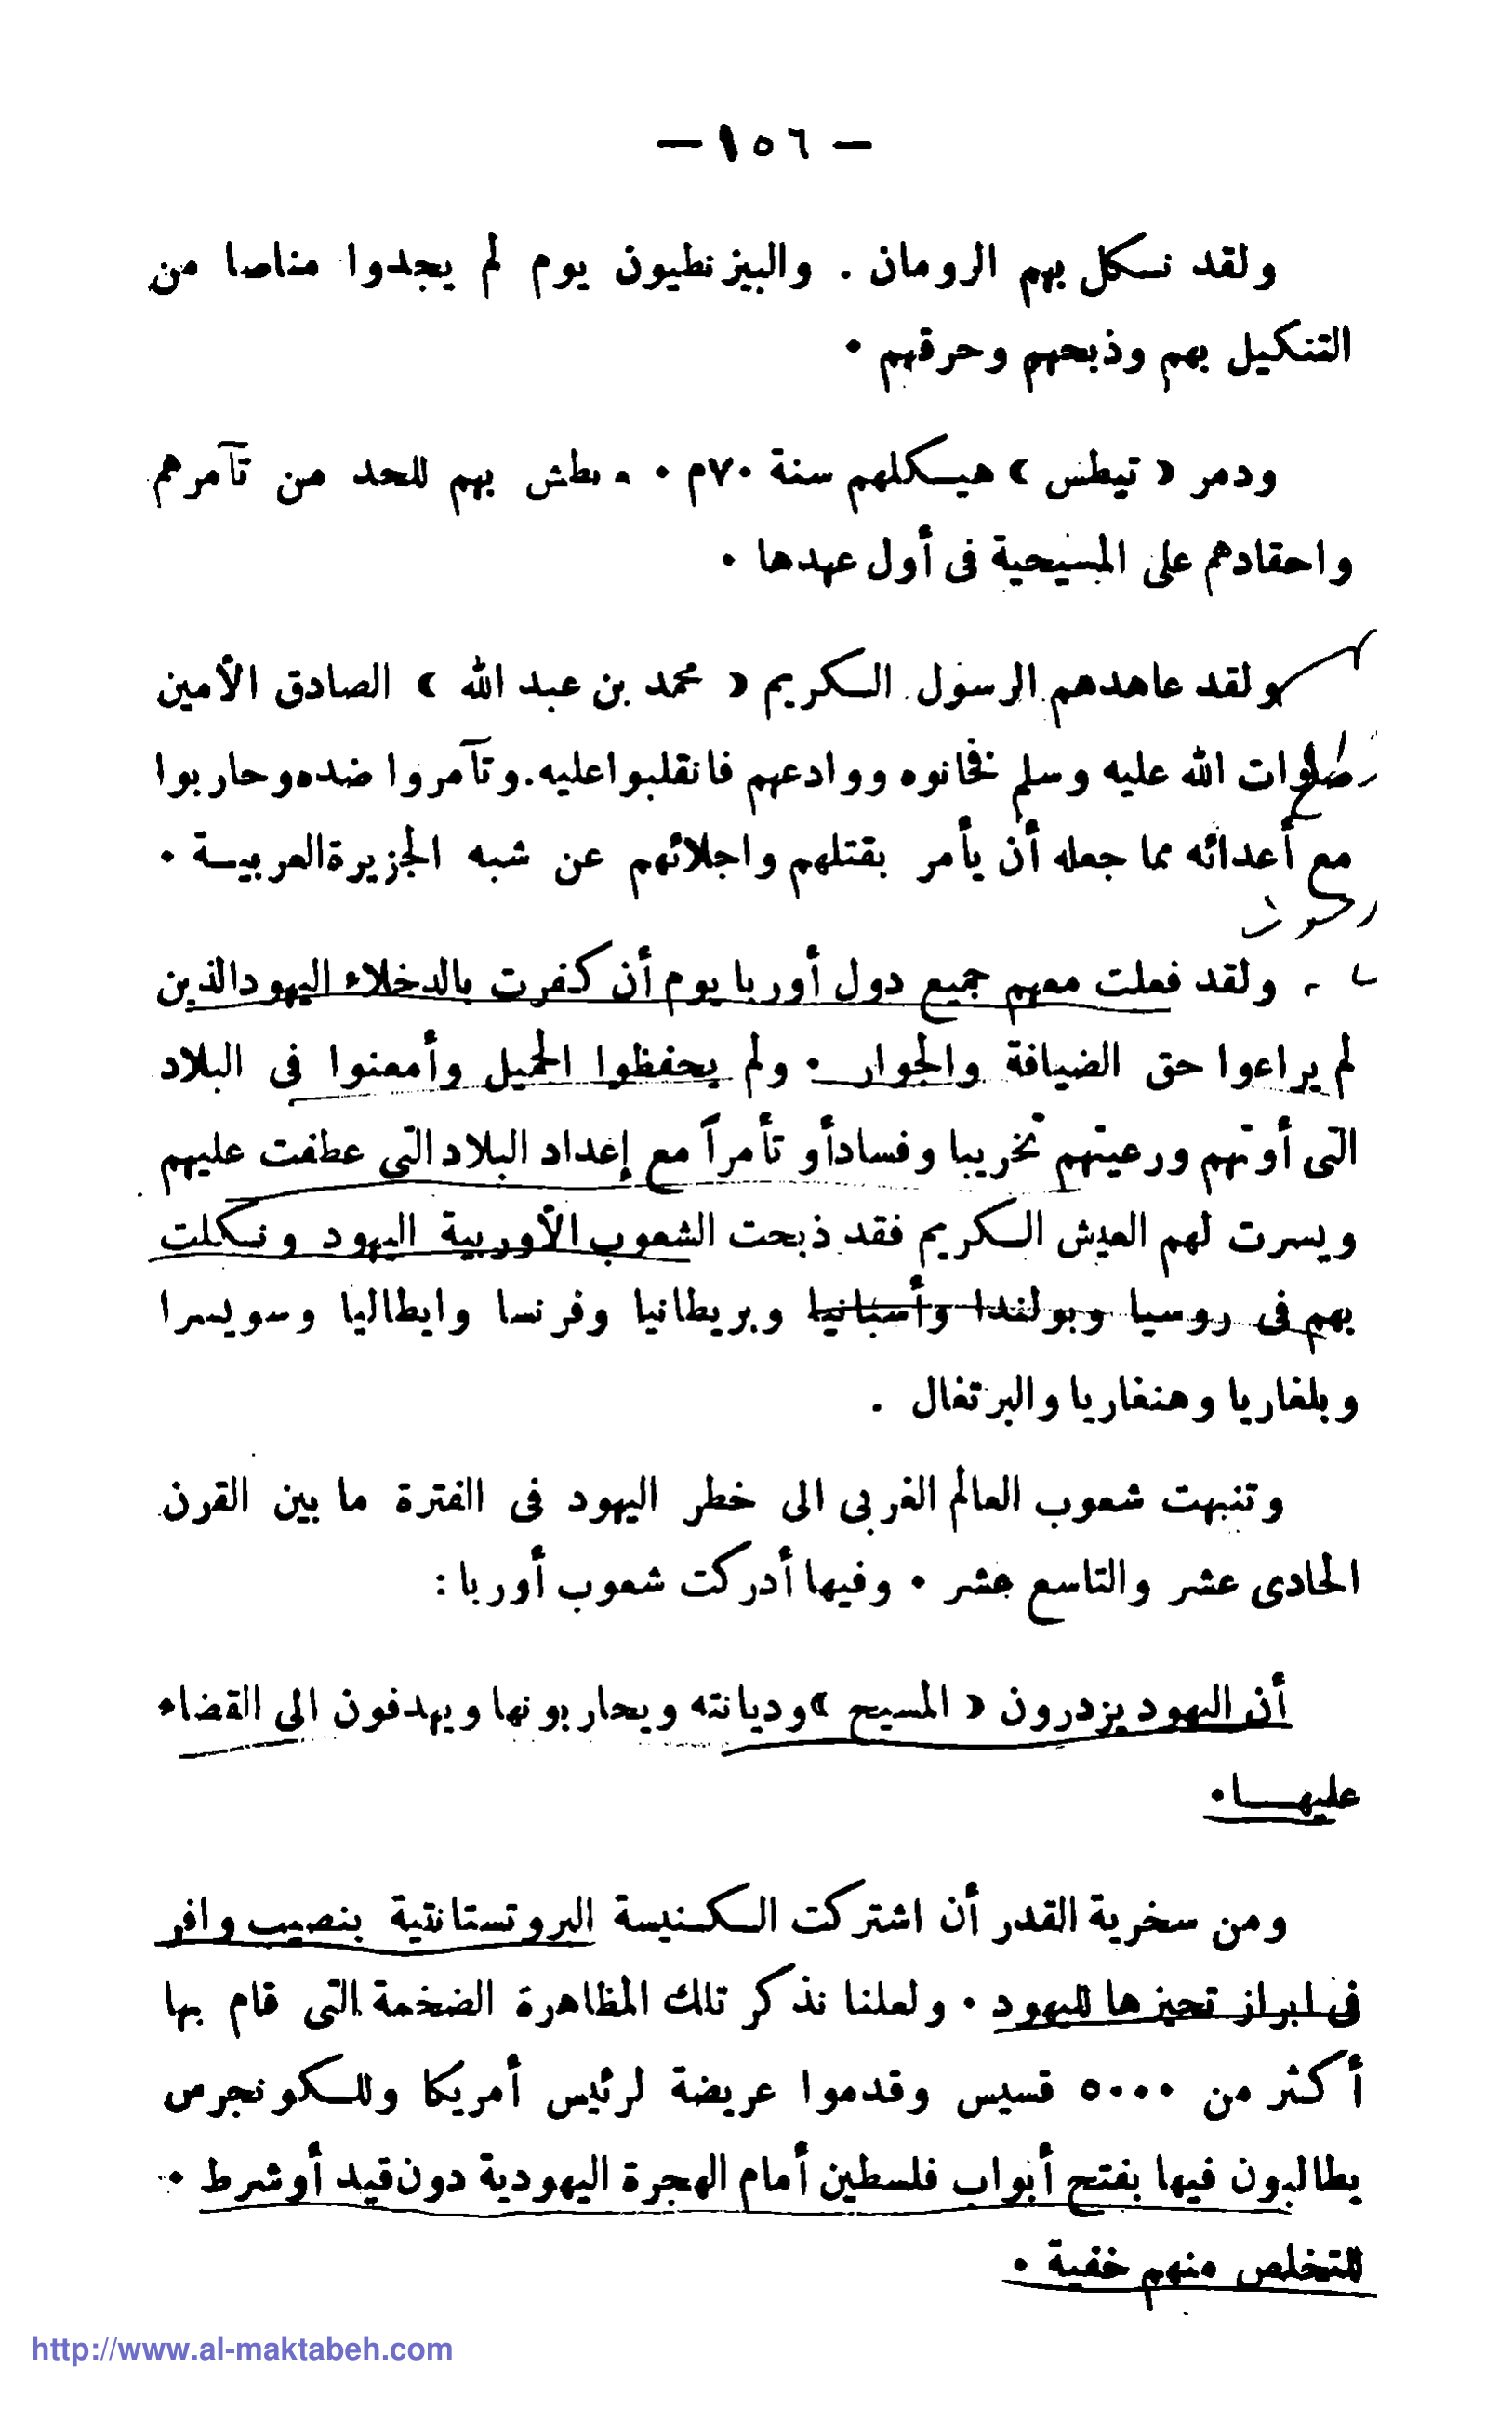 — ١٥٦ —
ولقد نسكل بهم الرومان . والبيزنطيون يوم لم يجدوا مناصا من
التنكيل بهم وذبحهم وحرقهم .
ودمر « تيطس » هيسكلهم سنة ٧٠م . وبطش بهم للحد من تآمرهم
واحقادهم على المسيحية فى أول عهدها .
ولقد عاهدهم الرسول السكريم « محمد بن عبد الله » الصادق الأمين
صلوات الله عليه وسلم فخانوه ووادعهم فانقلبوا عليه . وتآمروا ضده وحاربوا
مع أعدائه مما جعله أن يأمر بقتلهم واجلائهم عن شبه الجزيرة العربيـة .
ولقد فعلت معهم جميع دول أوربا يوم أن كفرت بالدخلاء اليهود الذين
لم يراعوا حق الضيافة والجوار . ولم يحفظوا الجميل وأمعنوا فى البلاد
التى أوتهم ورعيتهم تخريبا وفسادأو تأمراً مع إعداد البلاد التى عطفت عليهم
ويسرت لهم العيش السكريم فقد ذبحت الشعوب الأوربية اليهود ونسكلت
بهم فى روسيا وبولندا وأسبانيا وبريطانيا وفرنسا وايطاليا وسويسرا
وبلغاريا وهنغاريا والبرتغال .
وتنبهت شعوب العالم الغربى الى خطر اليهود فى الفترة ما بين القرن
الحادى عشر والتاسع عشر . وفيها أدركت شعوب أوربا :
أن اليهود يزدرون « المسيح » وديانته ويحاربونها ويهدفون الى القضاء
عليهـــا .
ومن سخرية القدر أن اشتركت السكنيسة البروتستانتية بنصيب وافر
فى ابراز تحيزها لليهود . ولعلنا نذكر تلك المظاهرة الضخمة التى قام بها
أكثر من ٥٠٠٠ قسيس وقدموا عريضة لرئيس أمريكا وللسكونجرس
يطالبون فيها بفتح أبواب فلسطين أمام الهجرة اليهودية دون قيد أو شرط .
للتخلص منهم خفية .
http://www.al-maktabeh.com